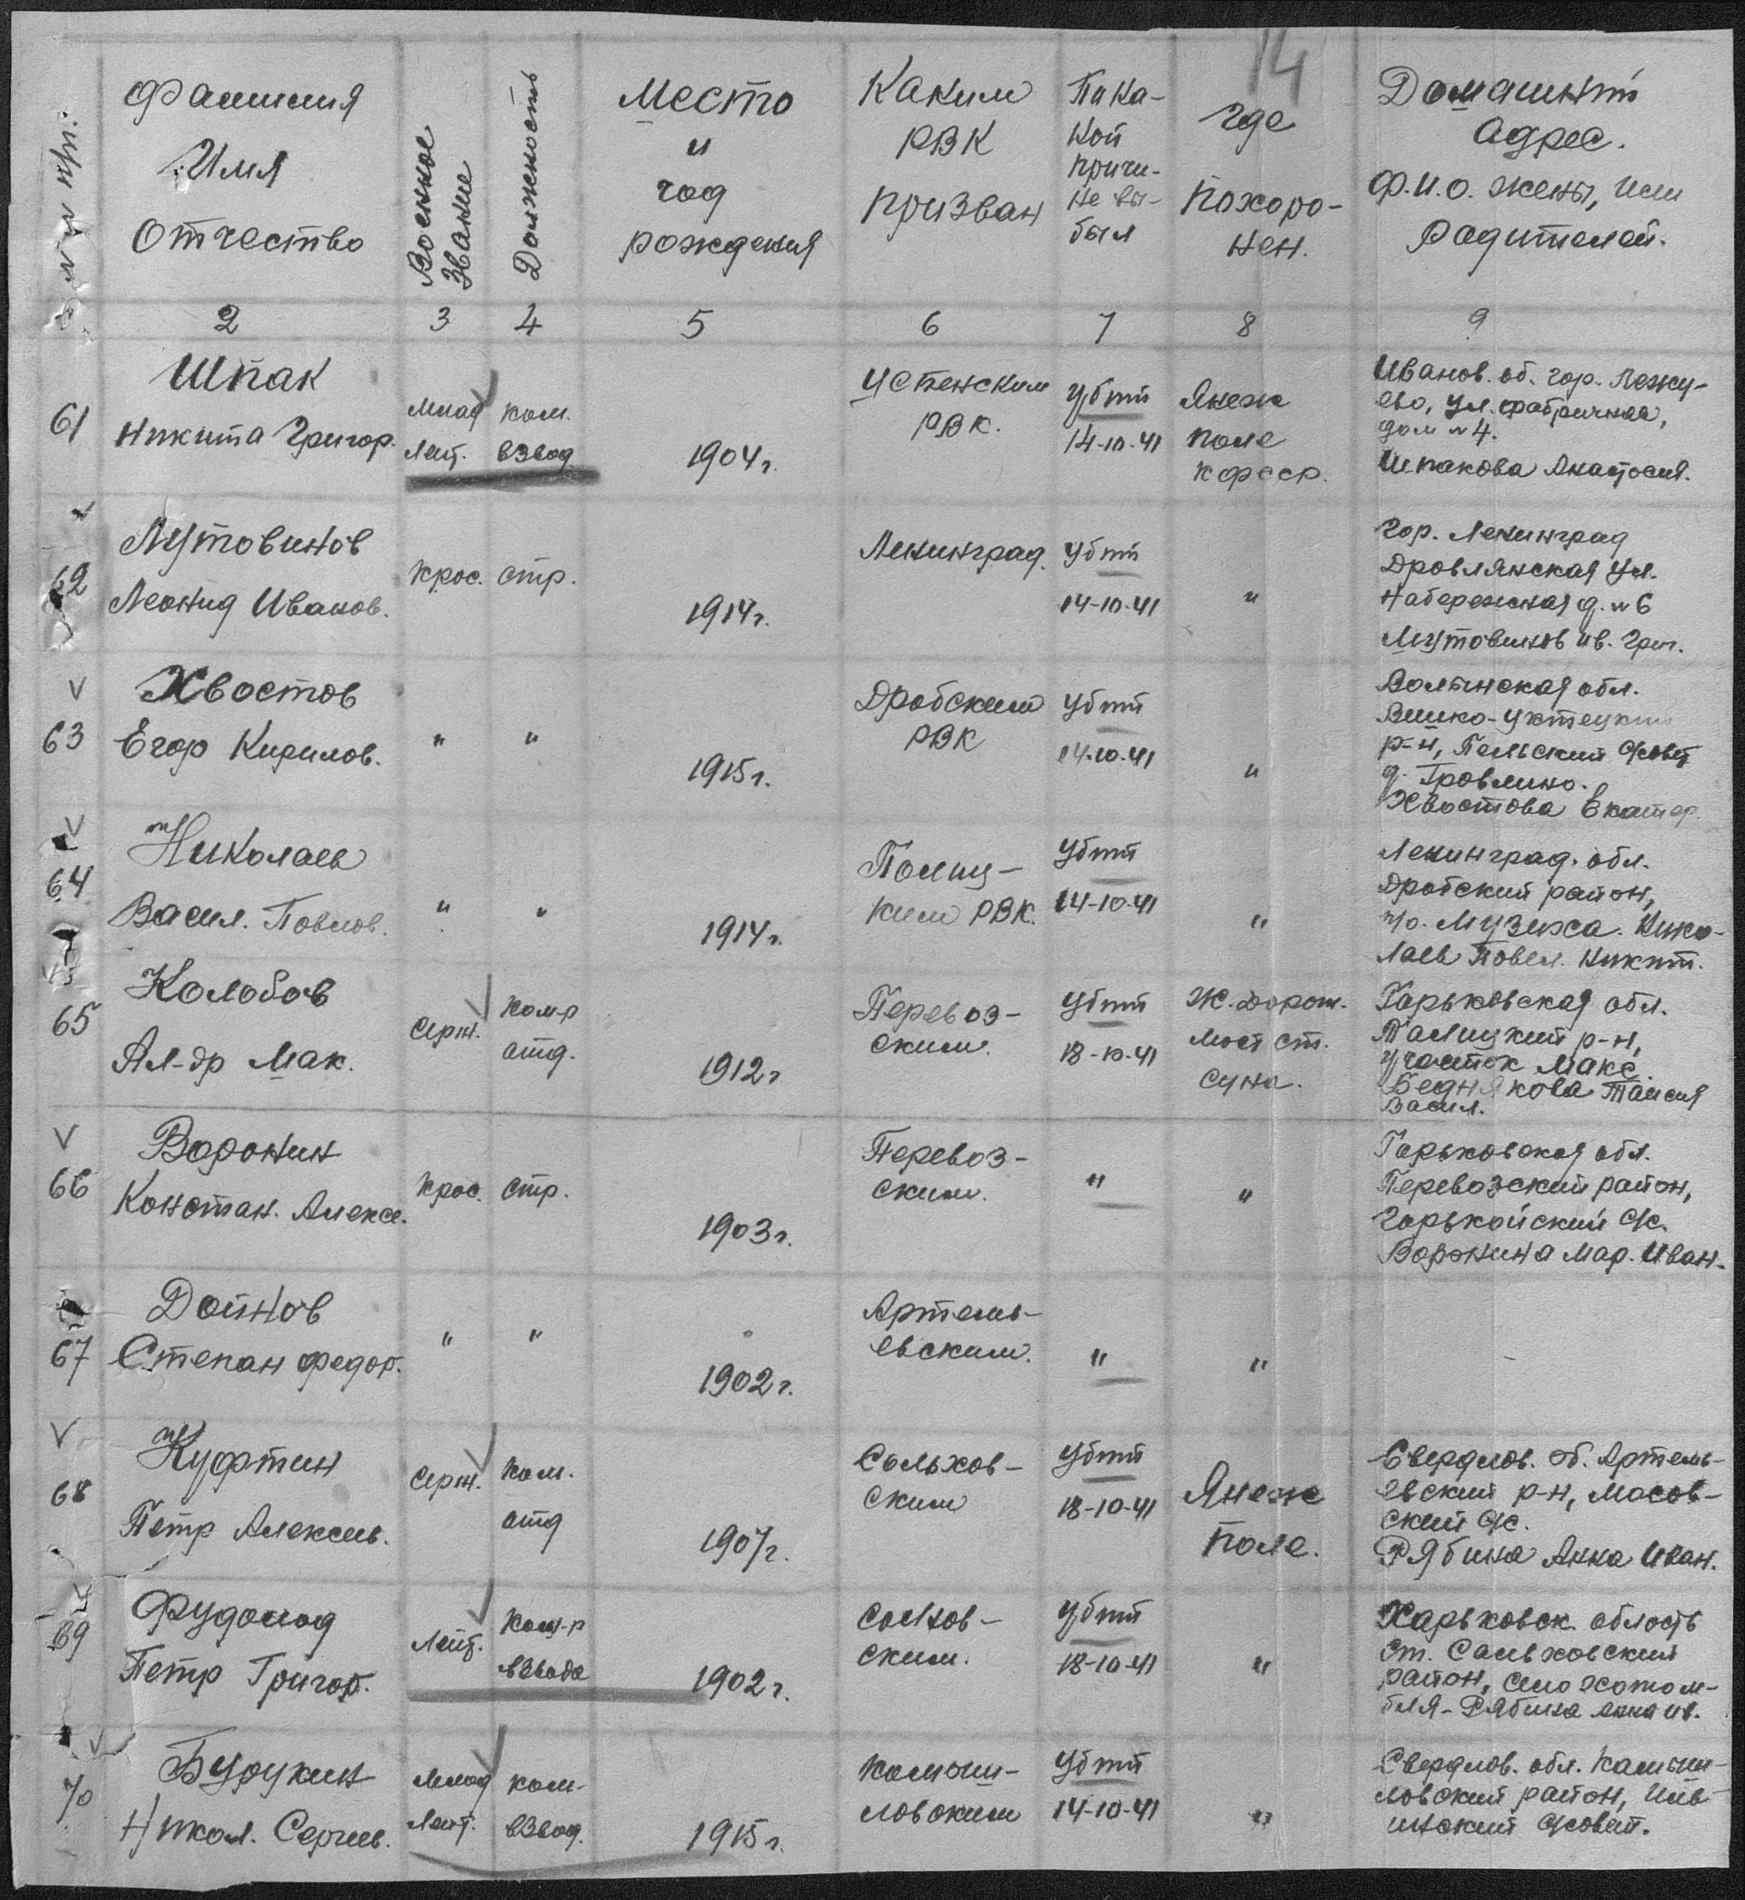 14
№ № п/п.
Фамилия
Имя
Отчество
Военное
Звание
Должность
Место
и
год
рождения
Каким
РВК
призван
По ка-
кой
причи-
не вы-
был
Где
Похоро-
нен.
Домашний
адрес.
Ф.И.О. жены, или
Родителей.
2 3 4 5 6 7 8 9
61
Шпак
Никита Григор.
Млад
Лейт.
ком.
взвод
1904 г.
Успенским
РВК.
Убит
14-10-41
Янеж
поле
КФССР.
Иванов. об. гор. Лежу-
ево, ул. Фабричная,
дом № 4.
Шпакова Анастосия.
62
Лутовинов
Леонид Иванов.
Крас. стр.
1914 г.
Ленинград.
Убит
14-10-41
"
Гор. Ленинград
Дровлянская ул.
Набережная д. № 6
Лутовинов Ив. Григ.
63
Хвостов
Егор Кирилов.
" "
1915 г.
Дробским
РВК
Убит
14-10-41
"
Волынская обл.
р-н, Пельский с/совет
д. Гровлино.
Хвостова Екатер.
64
Николаев
Васил. Повлов.
" "
1914 г.
ким РВК.
Убит
14-10-41
"
Ленинград. обл.
Дробский район,
п/о. Музирса. Нико-
лаев Повел. Никит.
65
Колобов
Ал-др Мак.
Серж.
Ком-р
отд.
1912 г
Перевоз-
ским.
Убит
18-10-41
Ж. Дорож.
Мост ст.
Суна.
Горьковская обл.
р-н,
участок Макс.
Беднякова Таисия
Васил.
66
Воронин
Констан. Алексе.
Крас. стр.
1903 г.
Перевоз-
ским.
"
"
Горьковская обл.
Перевозский район,
Горькойский с/с.
Воронина Мар. Иван.
67
Дойнов
Степан Федор.
" "
1902 г.
Артемь-
евским.
"
"
68
Куфтин
Петр Алексеев.
Серж.
Ком.
отд
1907 г.
Сальхов-
ским
Убит
18-10-41
Янеж
поле.
Свердлов. об. Артемь-
евский р-н, Мосов-
ский с/с.
Рябина Анна Иван.
69
Фудолод
Петр Григор.
Лейт.
Ком-р
взвода
1902 г.
ским.
Убит
18-10-41
"
Харьковск. область
ст. Сальховский
район, село Хотом-
бля - Рябина Анна Ив.
70
Никол. Сергеев.
Млад
Лейт.
ком-
взвод.
1915 г.
Камыш-
ловским
Убит
14-10-41
"
Свердлов. обл. Камыш-
ловский район,
инский с/совет.